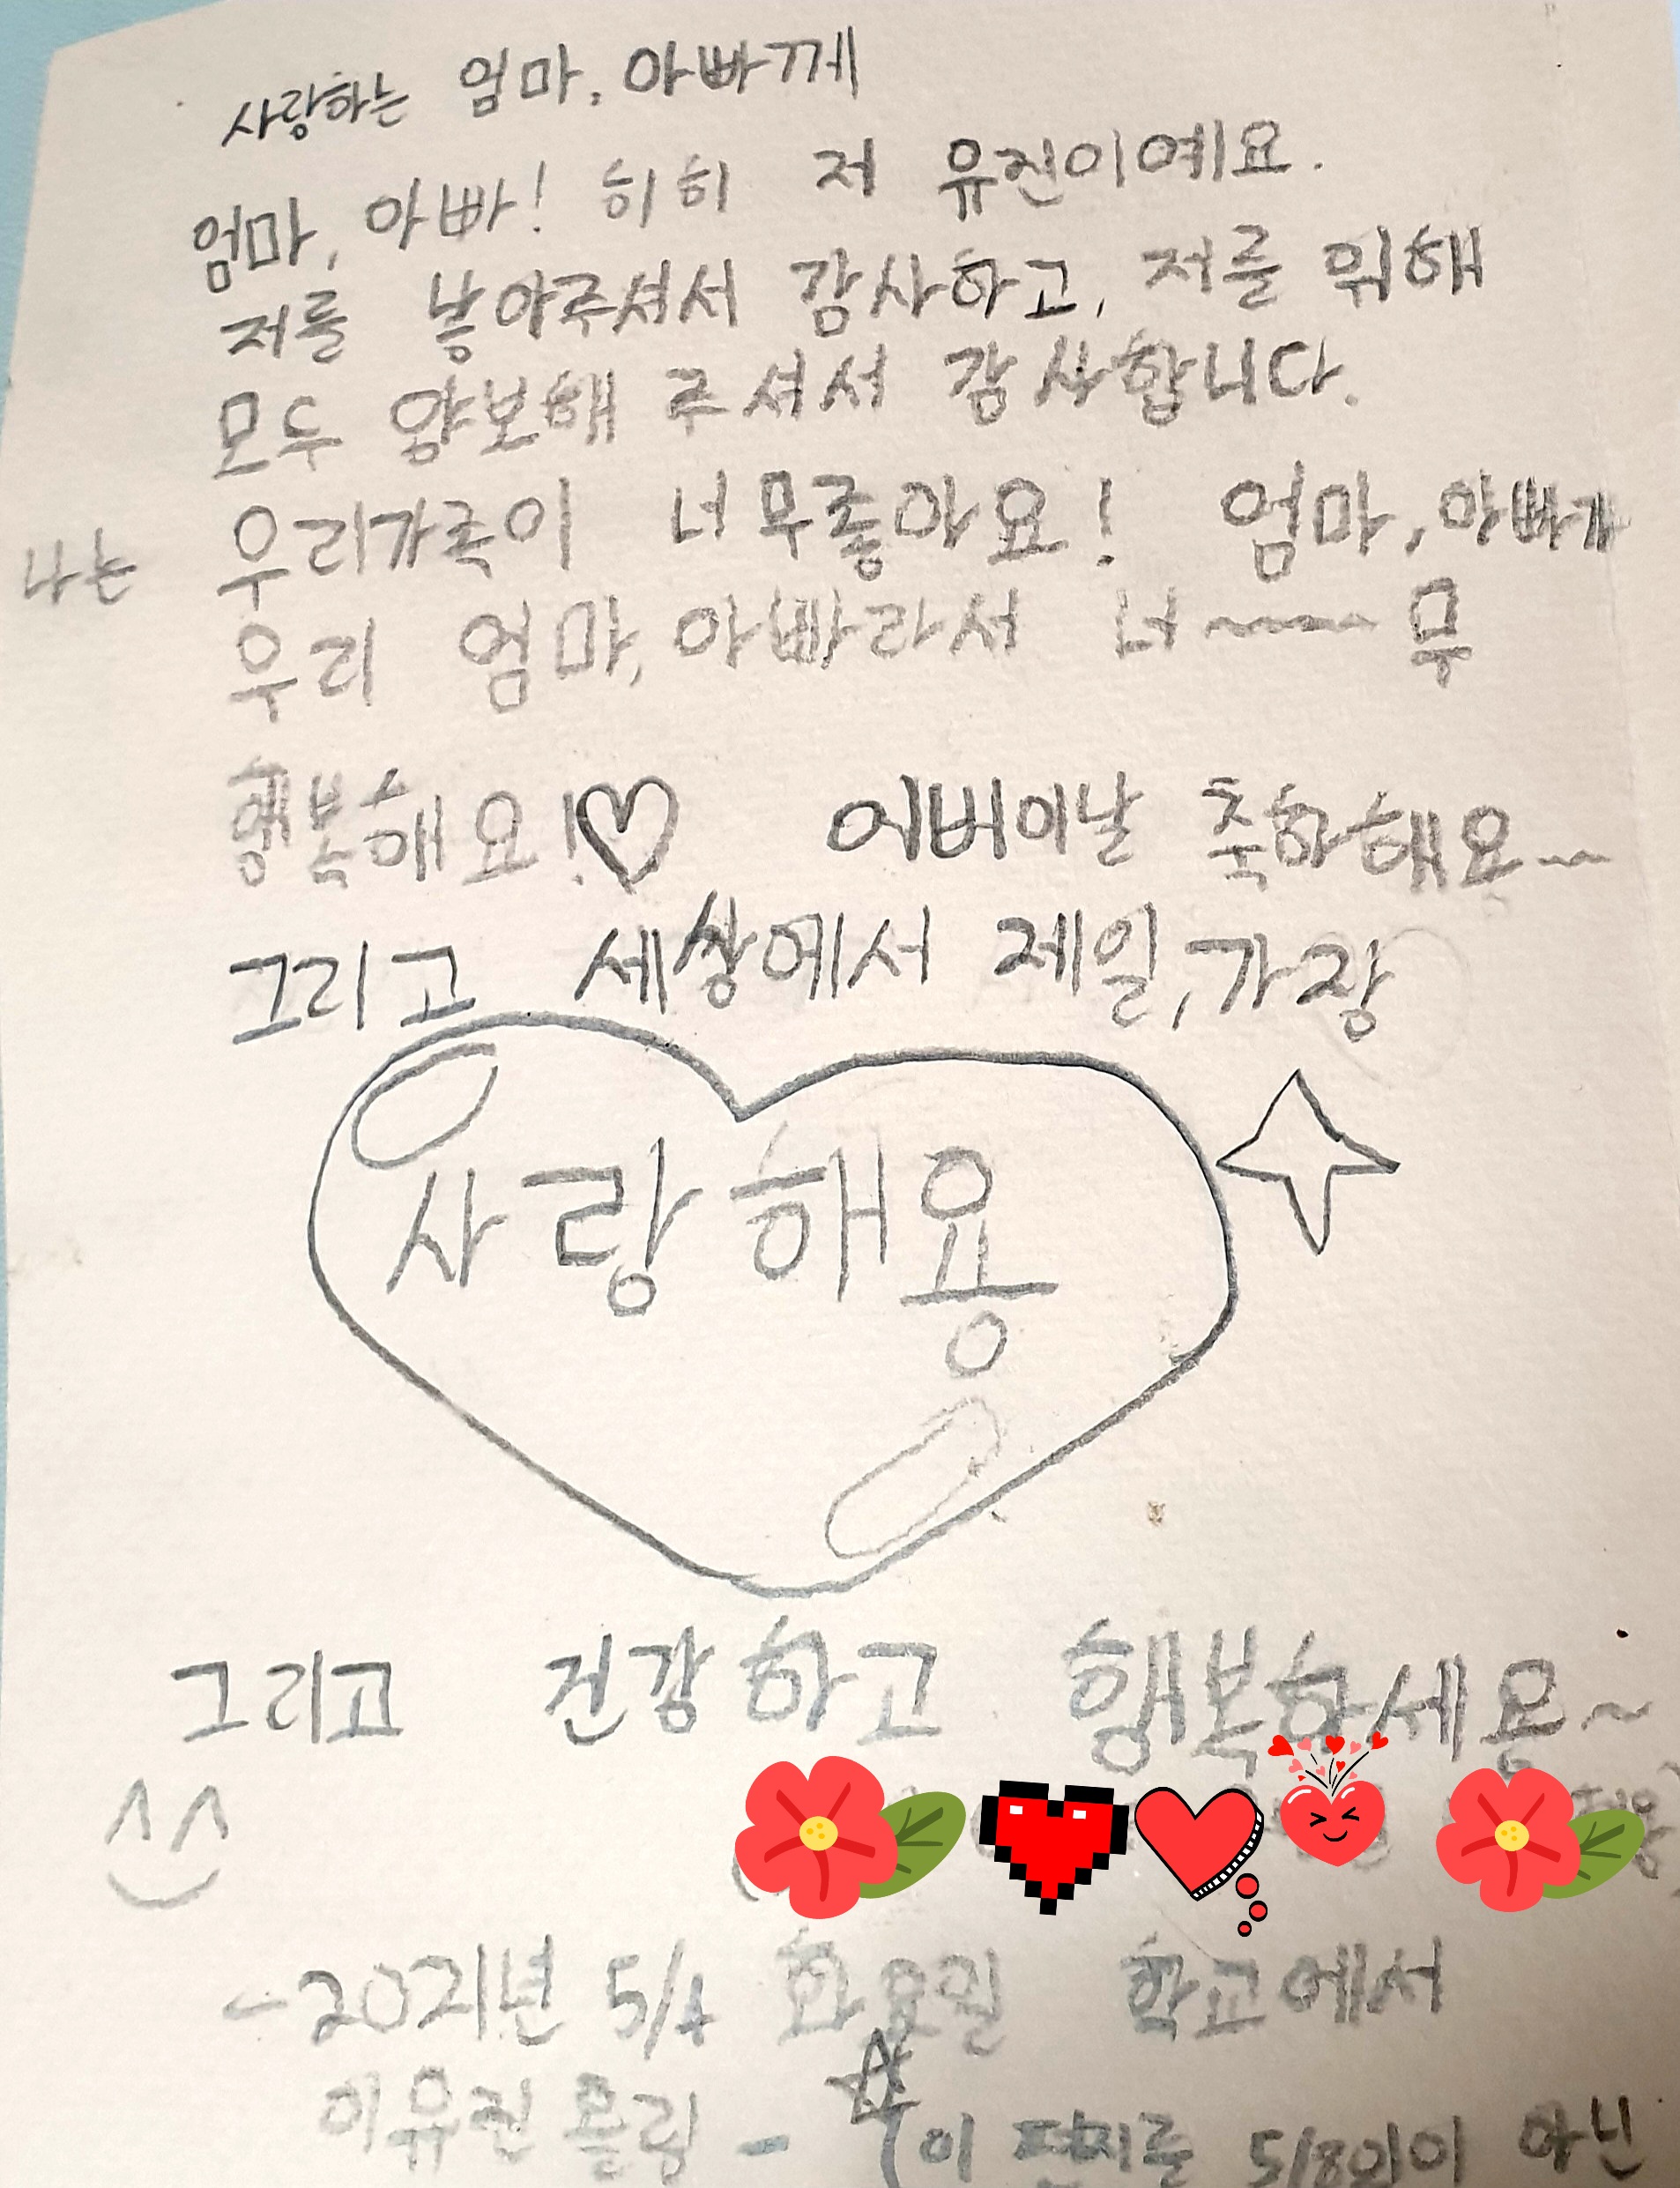 사랑하는 엄마, 아빠께
엄마, 아빠! 히히 저 유진이예요.
저를 낳아주셔서 감사하고, 저를 위해
모두 양보해 주셔서 감사합니다.
나는 우리가족이 너무좋아요! 엄마, 아빠가
우리 엄마, 아빠라서 너~~~무
행복해요!♡ 어버이날 축하해요~~
그리고 세상에서 제일, 가장
사랑해용
그리고 건강하고 행복하세용~
-2021년 5/4 화요일 학교에서
이유진 올림 - ☆(이 편지를 5/8일이 아닌